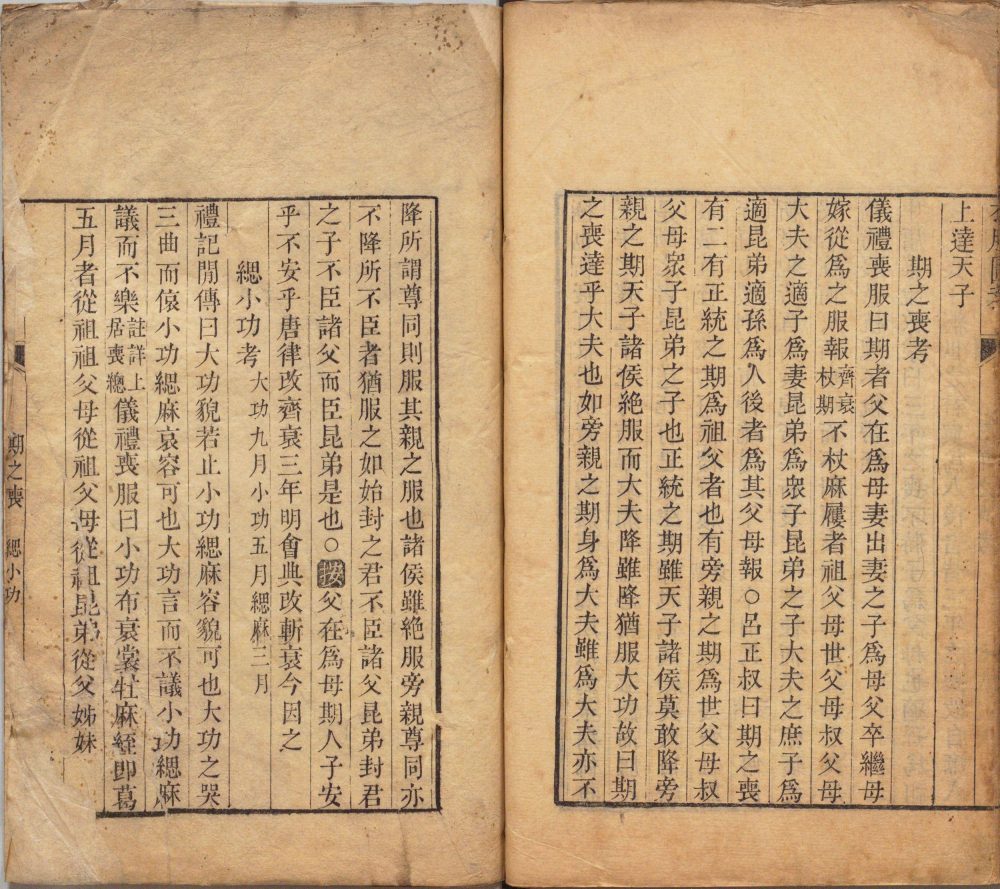 上達天子
期之喪考
儀禮喪服曰期者父在爲母妻出妻之子爲母父卒繼母
嫁從爲之服報齊衰杖期不杖麻屨者祖父母世父母叔父母
大夫之適子爲妻昆弟爲衆子昆弟之子大夫之庶子爲
適昆弟適孫爲人後者爲其父母報○呂正叔曰期之喪
有二有正統之期爲祖父者也有旁親之期爲世父母叔
父母衆子昆弟之子也正統之期雖天子諸侯莫敢降旁
親之期天子諸侯絶服而大夫降雖降猶服大功故曰期
之喪達乎大夫也如旁親之期身爲大夫雖爲大夫亦不
降所謂尊同則服其親之服也諸侯雖絶服旁親尊同亦
不降所不臣者猶服之如始封之君不臣諸父昆弟封君
之子不臣諸父而臣昆弟是也○按父在爲母期人子安
乎不安乎唐律改齊衰三年明會典改斬衰今因之
緦小功考大功九月小功五月緦麻三月
禮記閒傳曰大功貌若止小功緦麻容貌可也大功之哭
三曲而偯小功緦麻哀容可也大功言而不議小功緦麻
議而不樂註詳上居喪總儀禮喪服曰小功布衰裳牡麻絰即葛
五月者從祖祖父母從祖父母從祖昆弟從父姊妹
期之喪 緦小功